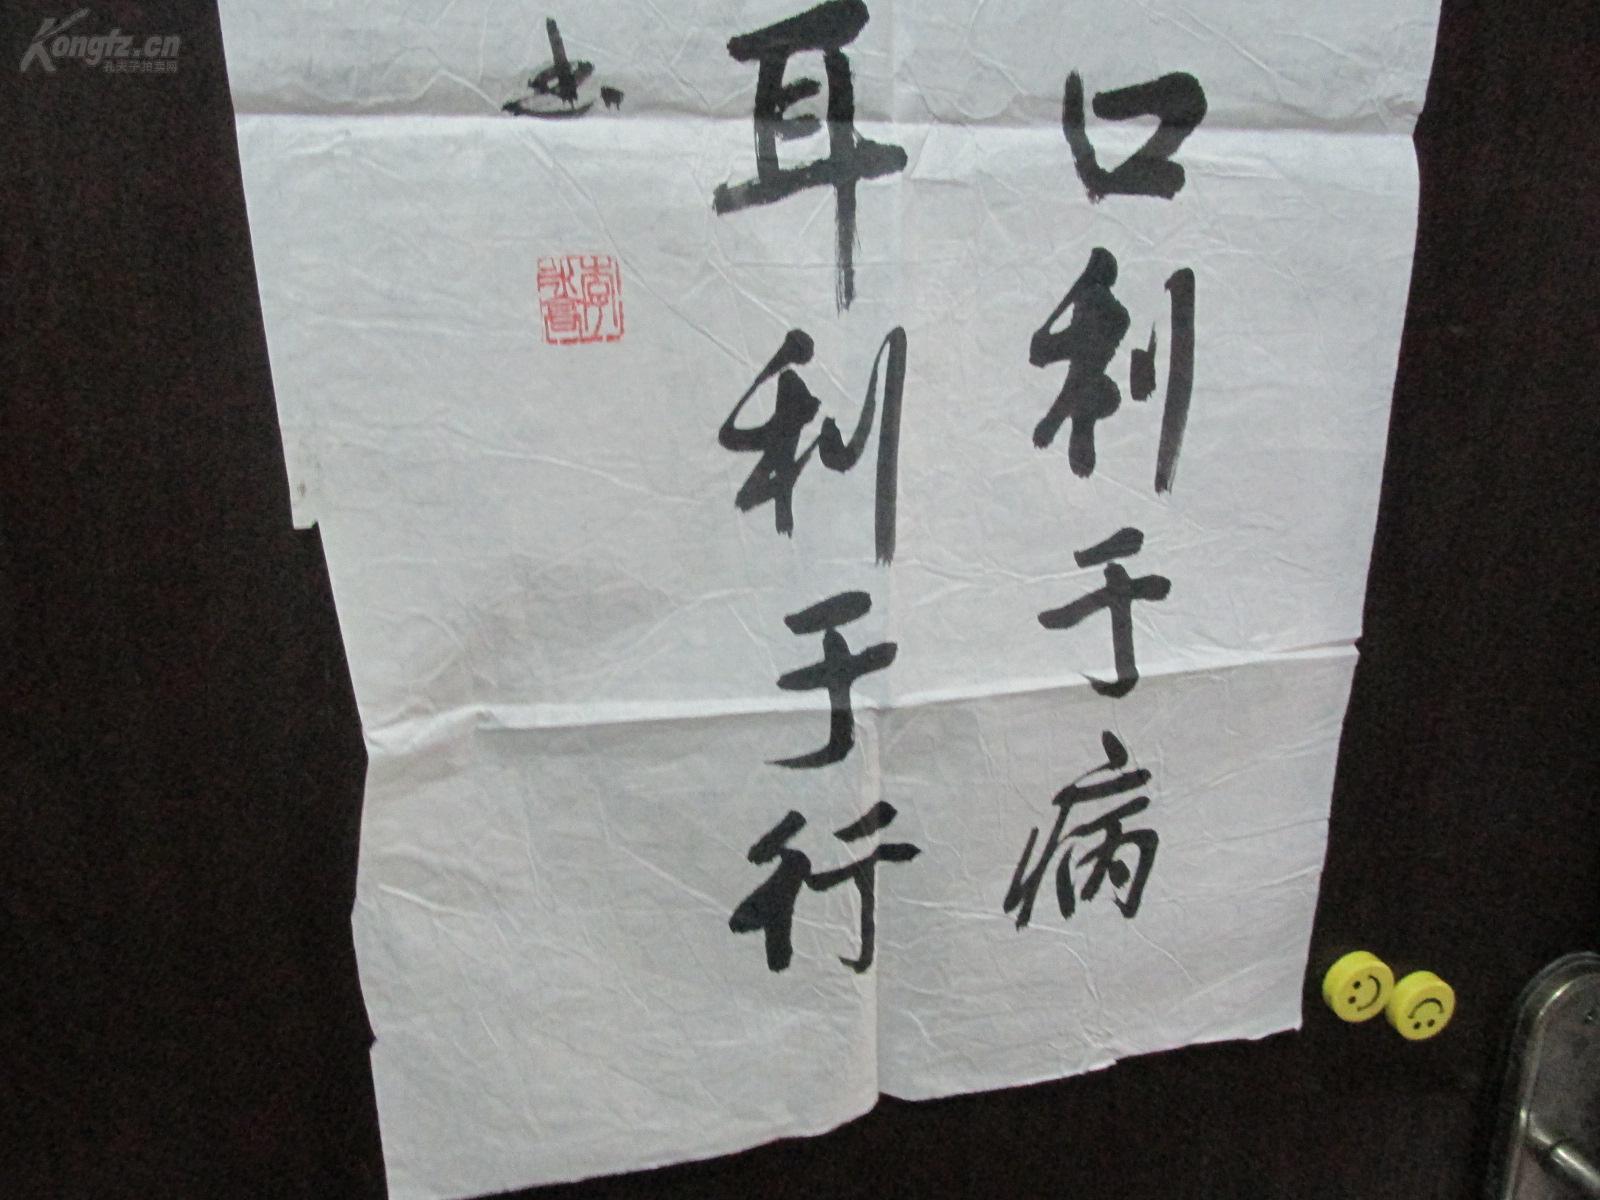 口利于病
耳利于行
书
Kongfz.cn
孔夫子拍卖网